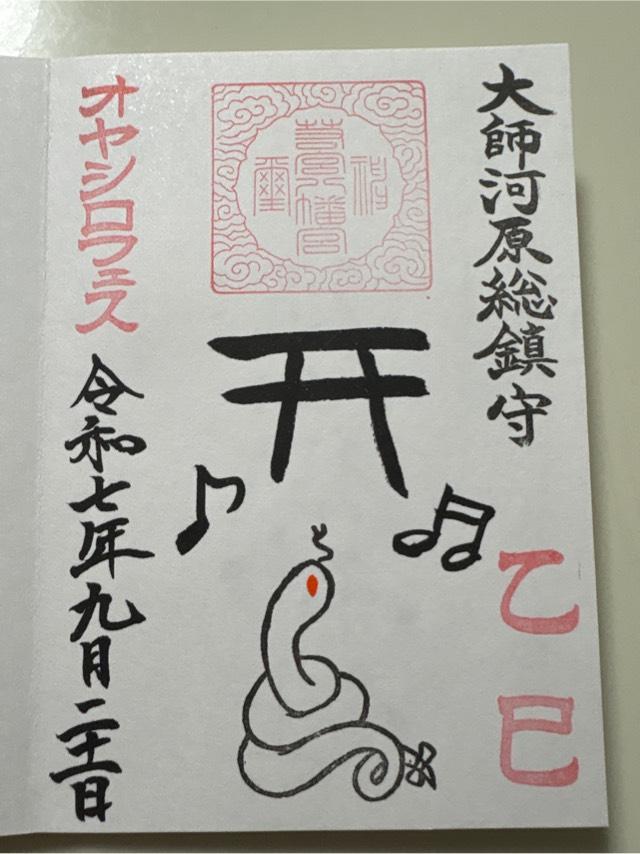 大師河原総鎮守
乙巳
若宮八幡宮
オヤシロフェス
令和七年九月二十一日